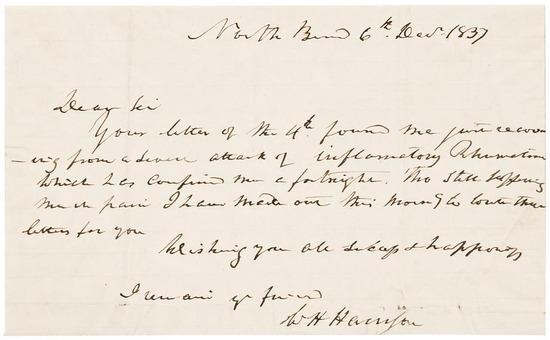 North Bend 6th Decr. 1837
Dear Sir
Your letter of the 4th found me just recover
-ing from a severe attack of inflamatory Rheumatism
which has confined me a fortnight. Tho still suffering
much pain I have made out this morng to write three
letters for you
Wishing you all success & happiness
I remain yr friend
W H Harrison